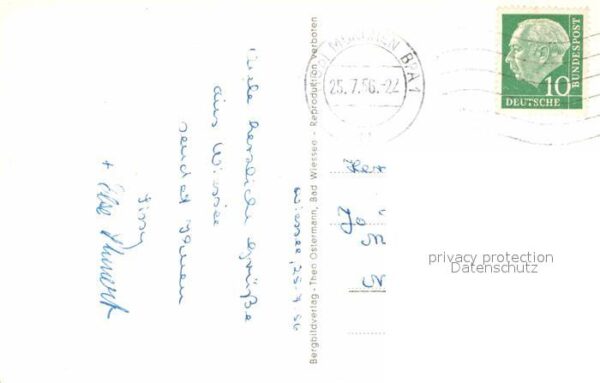 Wiessee, 25.7.56
Viele herzliche Grüße
aus Wiessee
sendet Ihnen
+ Ilse
Bergbildverlag - Theo Ostermann, Bad Wiessee - Reproduktion verboten
MÜNCHEN BPA 1
25.7.56.-22
10
DEUTSCHE
BUNDESPOST
privacy protection
Datenschutz